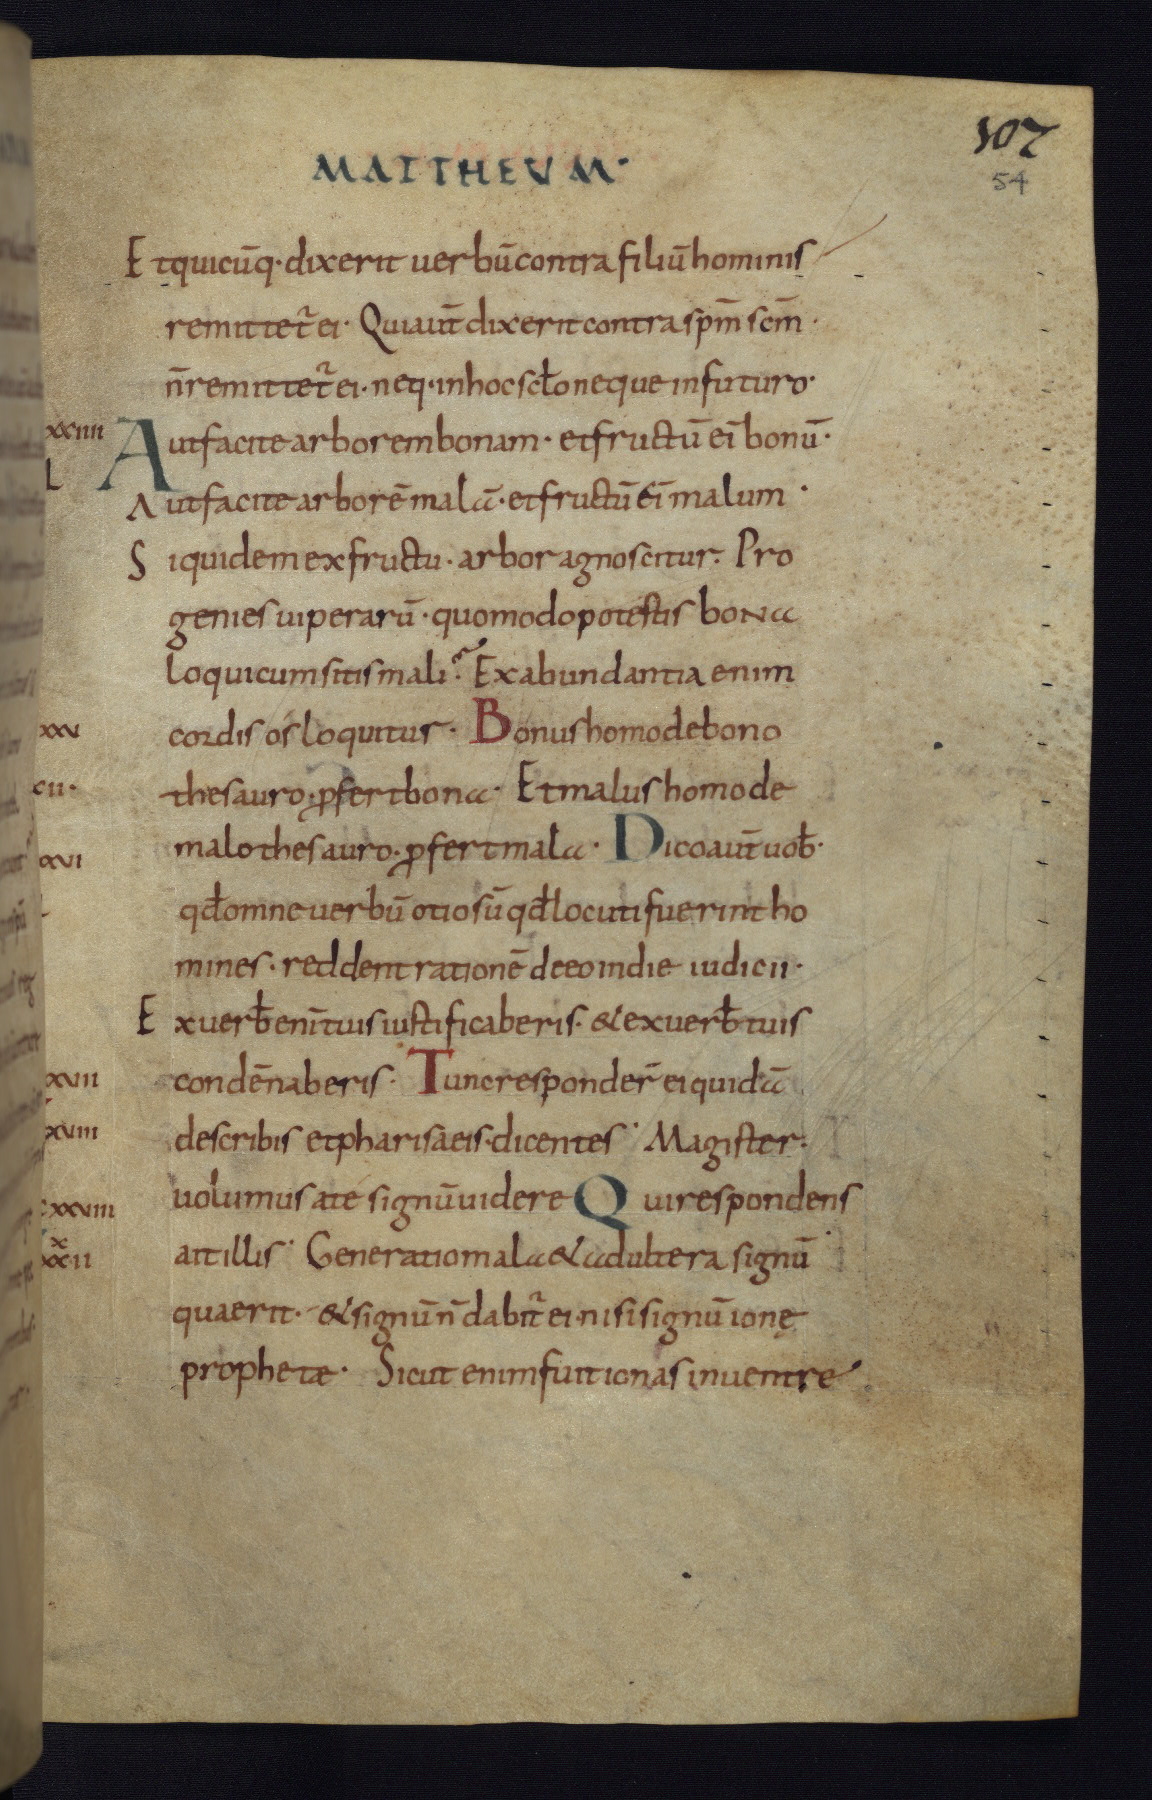 MATTHEUM·
107
54
Et quicūq· dixerit uerbū contra filiū hominis
remittet̃ ei· Qui aut̄ dixerit contra sp̄m sc̄m·
n̄ remittet̃ ei· neq· in hoc scło neque in futuro·
xxiiii
Aut facite arborem bonam· et fructū ei̅ bonū·
L
Aut facite arborē malā· et fructū ei̅ malum·
Siquidem ex fructu· arbor agnoscitur· Pro
genies uiperarū· quomodo potestis bona
loqui cum sitis mali? Ex abundantia enim
xxv
cordis os loquitus· Bonus homo de bono
cii·
thesauro· ꝓfert bona· Et malus homo de
malo thesauro· ꝓfert mala· Dico aut̄ uob̄·
xxvi
qđ omne uerbū otiosū qđ locuti fuerint ho
mines· reddent rationē de eo in die iudicii·
Ex uerb̄ eni̅ tuis iustificaberis· & ex uerb̄ tuis
xxvii
condēnaberis· Tunc responder̄ ei quidā
xxviii
de scribis et pharisaeis· dicentes· Magister·
cxxviiii
uolumus a te signū uidere Qui respondens
xxxii
ait illis· Generatio mala & adultera signū
quaerit· & signū n̄ dabit̃ ei· nisi signū ionę
prophetæ· Sicut enim fuit ionas in uentre